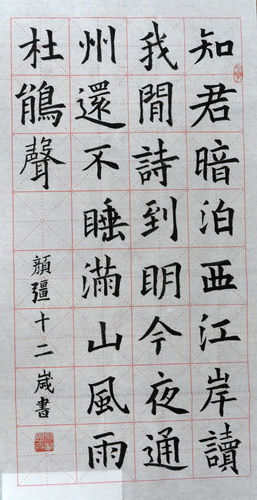 知君暗泊西江岸讀
我閒詩到明今夜通
州還不睡滿山風雨
杜鵑聲
顏疆十二歲書